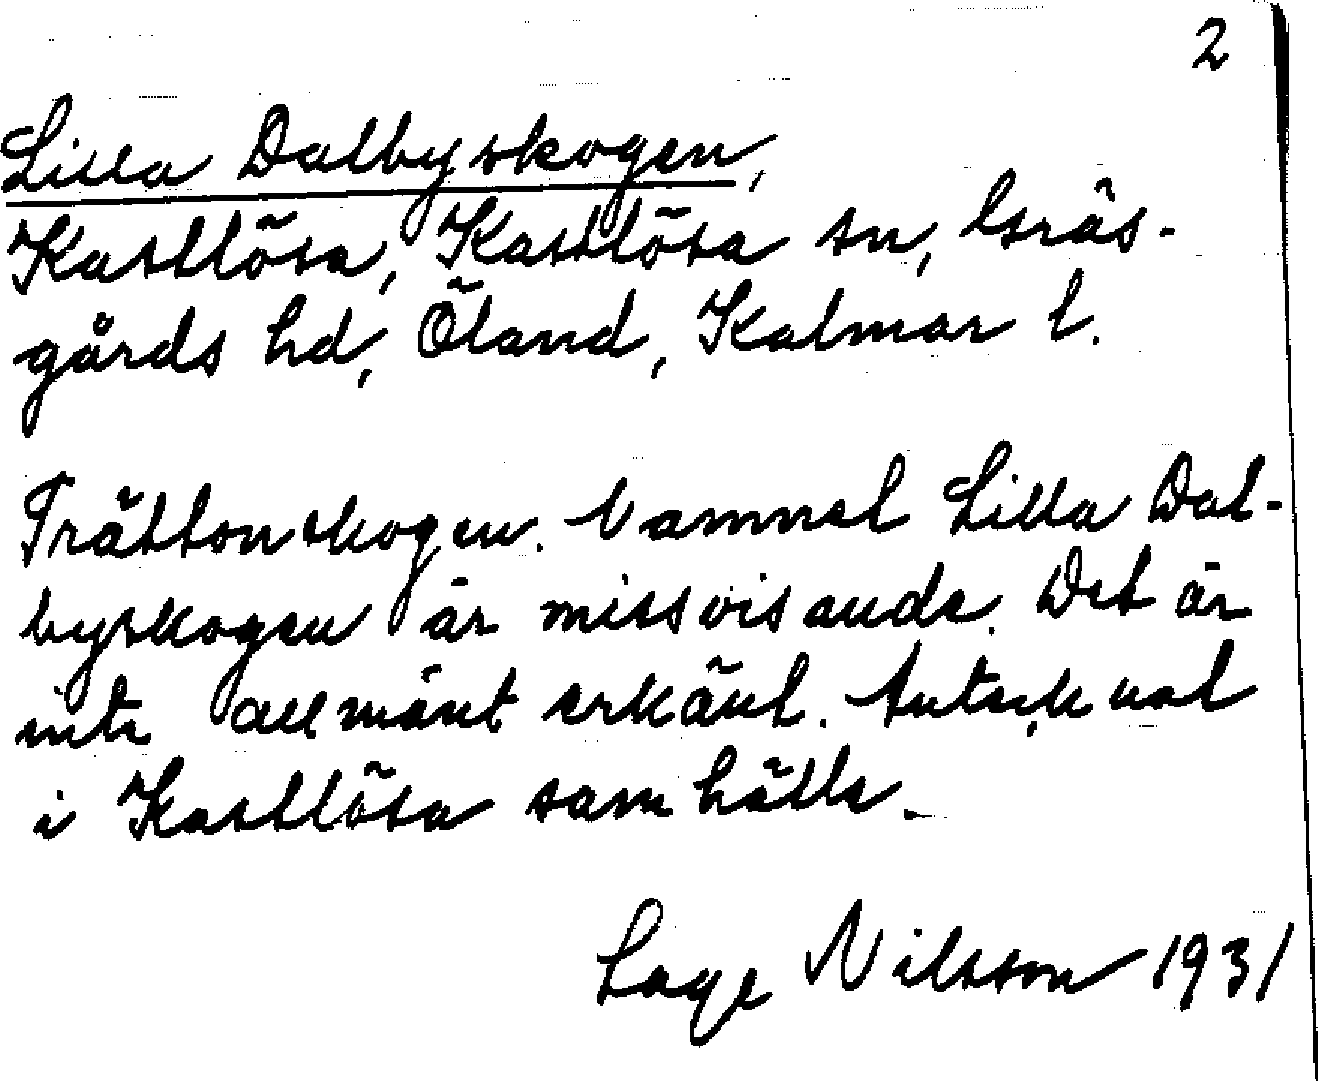 2
Lilla Dalbyskogen,
Kastlösa, Kastlösa sn, Gräs-
gårds hd, Öland, Kalmar l.
Trättonskogen. Namnet Lilla Dal-
byskogen är missvisande. Det är
inte allmänt erkänt. Antecknat
i Kastlösa samhälle.
Lage Nilsson 1931